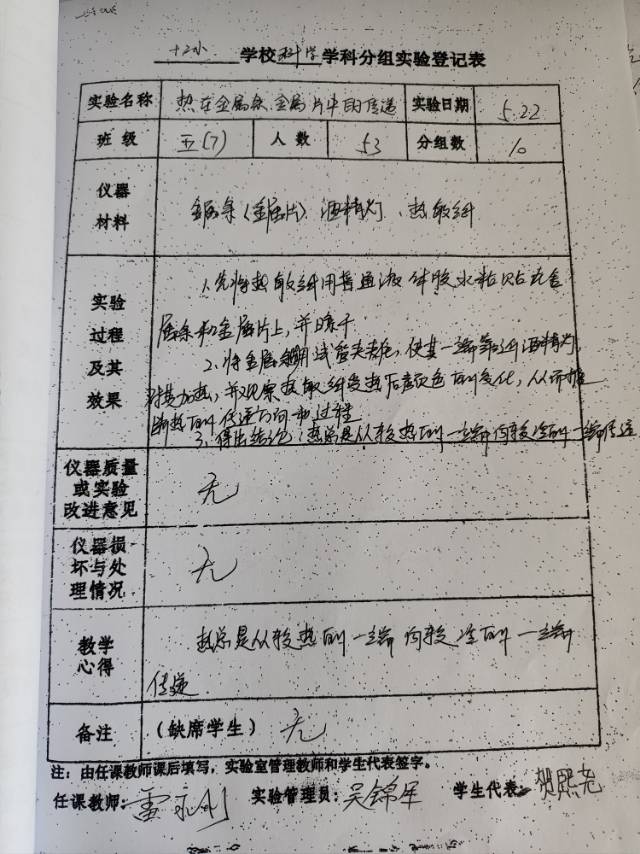 十二小 学校科学学科分组实验登记表
实验名称 热在金属条、金属片中的传递 实验日期 5.22
班级 五(7) 人数 53 分组数 10
仪器
材料
金属条(金属片)、酒精灯、热敏纸
实验
过程
及其
效果
1、先将热敏纸用普通液体胶水粘贴在金
属条和金属片上,并晾干
2、将金属条用试管夹夹住,使其一端靠近酒精灯
对其加热,并观察热敏纸受热后颜色的变化,从而推
断热的传递方向和过程
3、得出结论:热总是从较热的一端向较冷的一端传递
仪器质量
或实验
改进意见
无
仪器损
坏与处
理情况
无
教学
心得
热总是从较热的一端向较冷的一端
传递
备注 (缺席学生) 无
注:由任课教师课后填写,实验室管理教师和学生代表签字。
任课教师:雷永刚 实验管理员:吴锦军 学生代表:熙尧